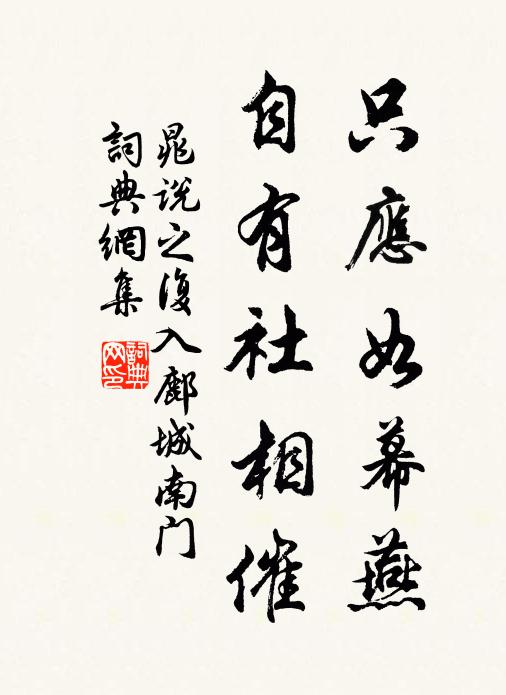 只應如幕燕
自有社相催
晁说之復入鄜城南门
詞典網集
詞典网印